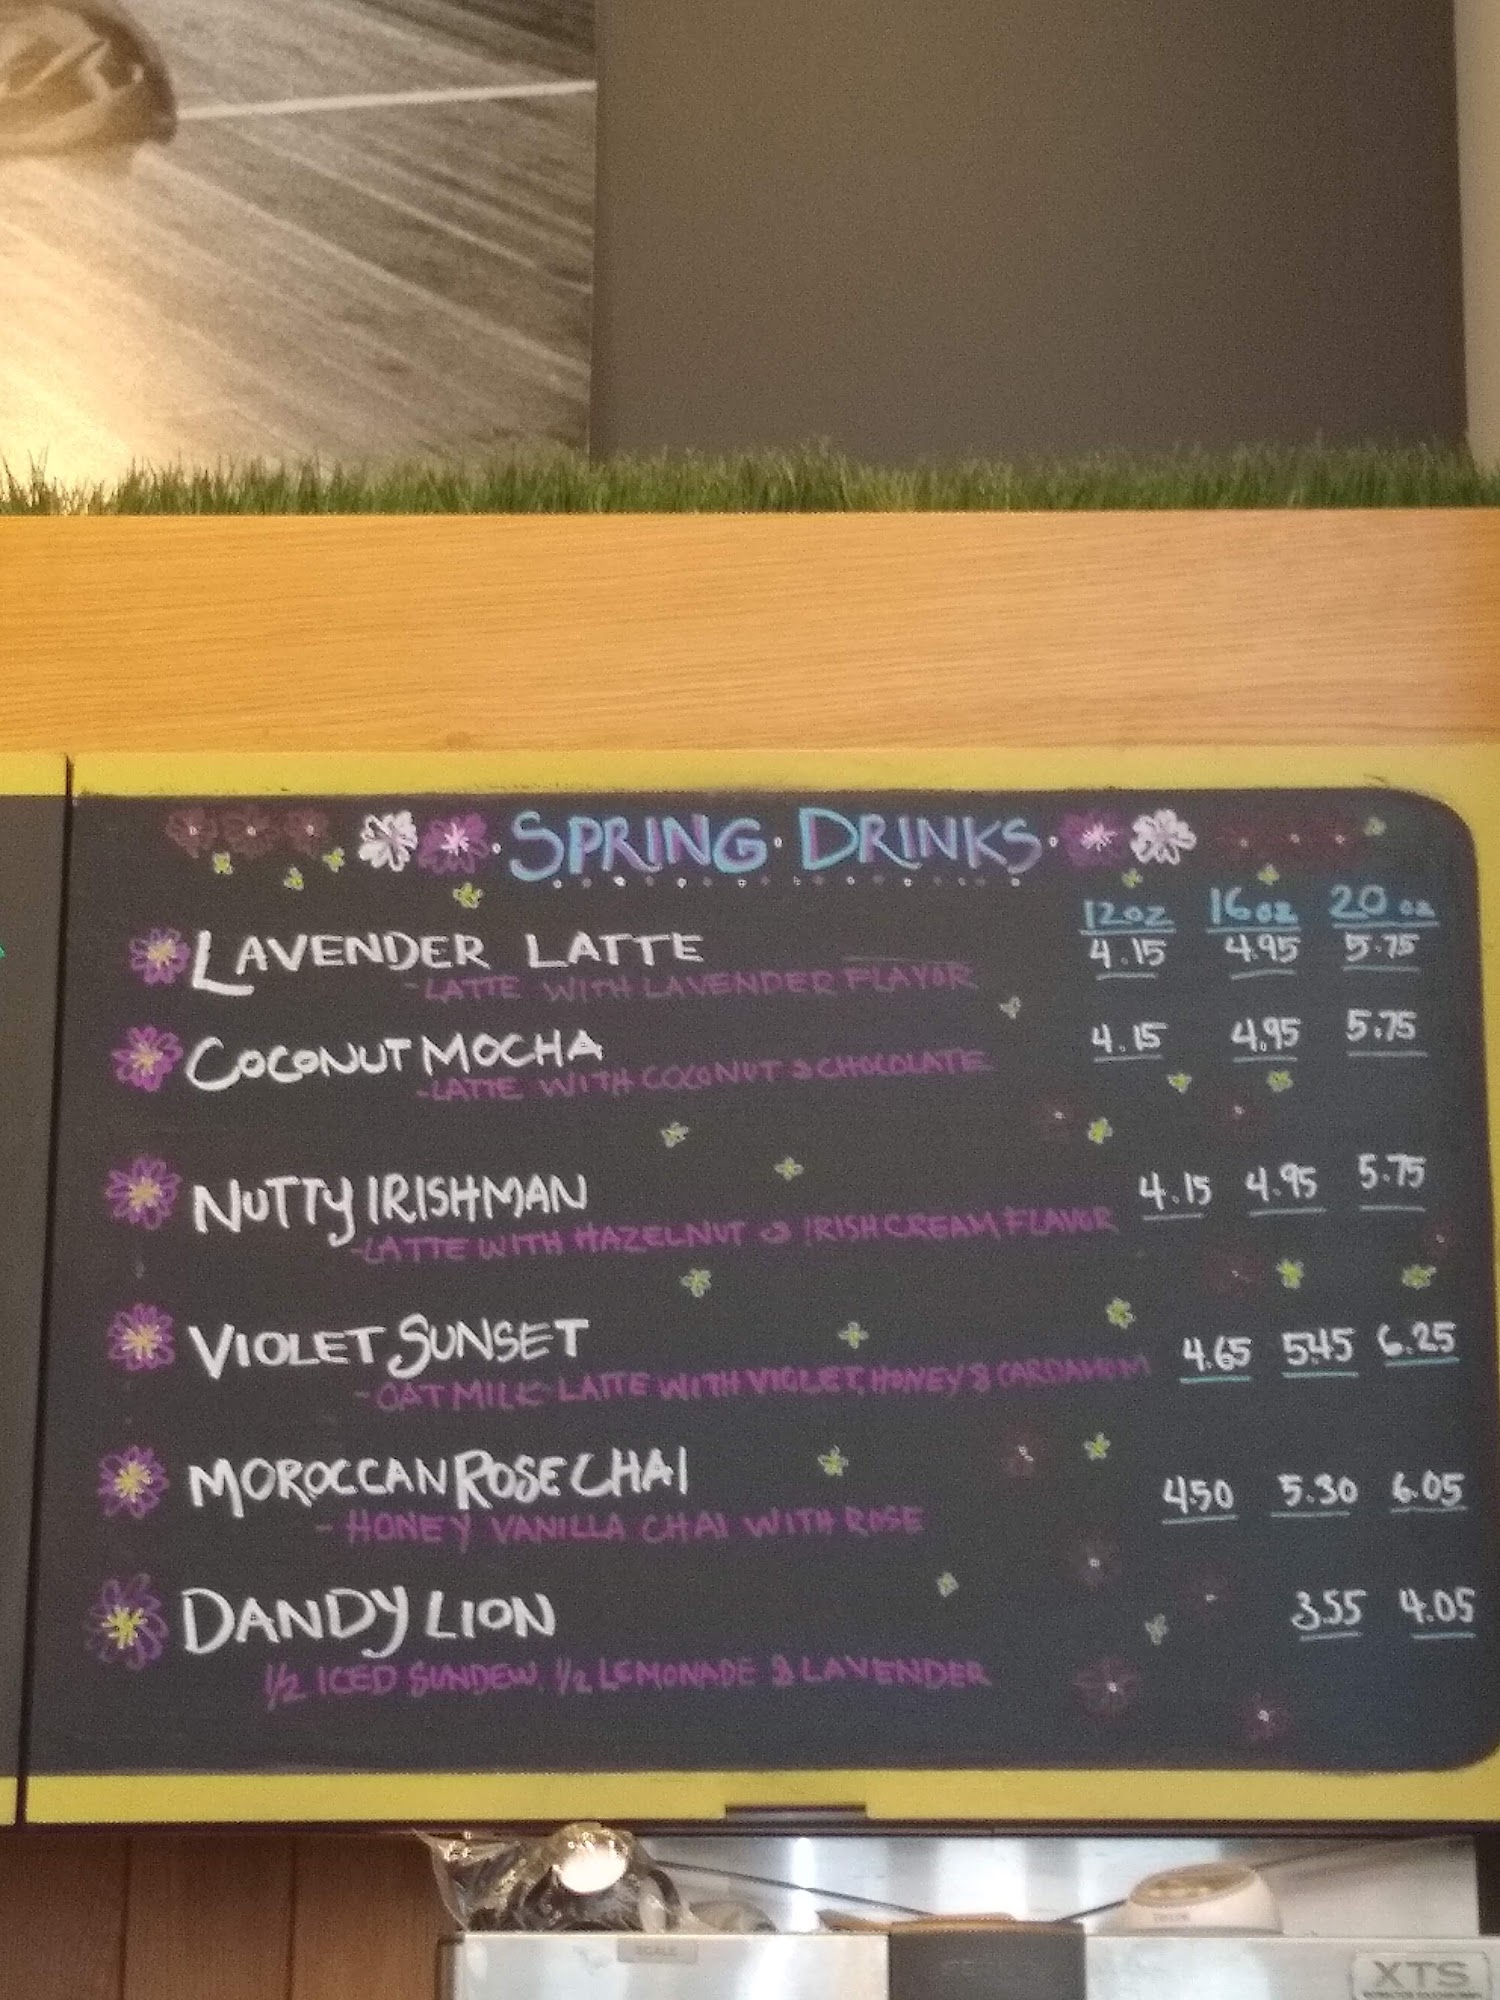 SPRING · DRINKS
12oz 16oz 20oz
LAVENDER LATTE 4.15 4.95 5.75
-LATTE WITH LAVENDER FLAVOR
COCONUT MOCHA 4.15 4.95 5.75
-LATTE WITH COCONUT & CHOCOLATE
NUTTY IRISHMAN 4.15 4.95 5.75
-LATTE WITH HAZELNUT & IRISH CREAM FLAVOR
VIOLET SUNSET 4.65 5.45 6.25
-OAT MILK LATTE WITH VIOLET, HONEY & CARDAMOM
MOROCCAN ROSE CHAI 4.50 5.30 6.05
- HONEY VANILLA CHAI WITH ROSE
DANDY LION 3.55 4.05
1/2 ICED SUNDEW, 1/2 LEMONADE & LAVENDER
SCALE
XTS